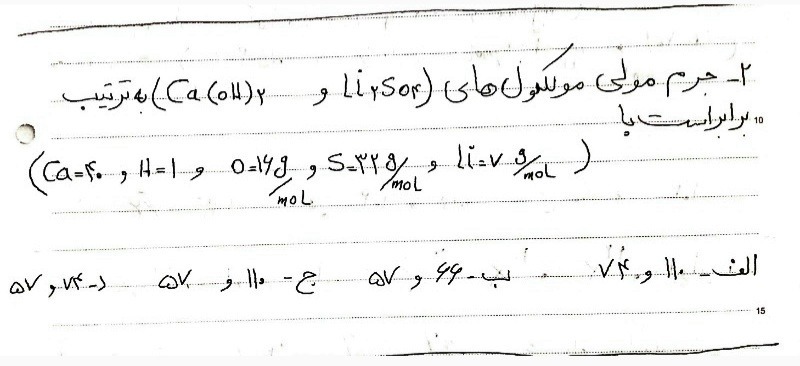 ۲- جرم مولی مولکول های (Li۲SO۴ و Ca(OH)۲) به ترتیب
برابر است با
10
(Ca=۴۰ و H=۱ و O=۱۶ g/mol و S=۳۲ g/mol و Li=۷ g/mol)
الف- ۱۱۰ و ۷۴ ب- ۶۶ و ۵۷ ج- ۱۱۰ و ۵۷ د- ۷۴ و ۵۷
15